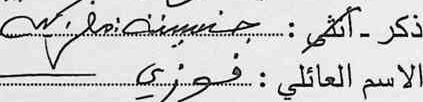 ذكر - أنثى : جنسيته :
الاسم العائلي : فوزي